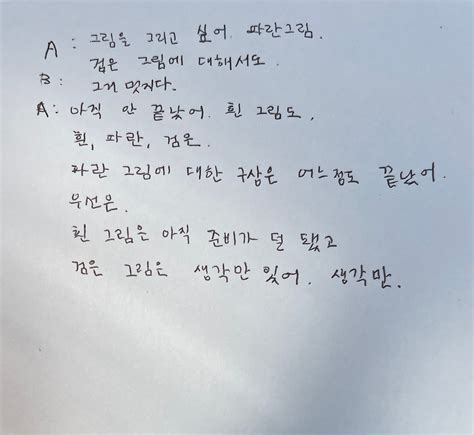 A : 그림을 그리고 싶어. 파란그림.
검은 그림에 대해서도.
B : 그거 멋지다.
A : 아직 안 끝났어. 흰 그림도,
흰, 파란, 검은.
파란 그림에 대한 구상은 어느정도 끝났어.
우선은.
흰 그림은 아직 준비가 덜 됐고
검은 그림은 생각만 있어. 생각만.